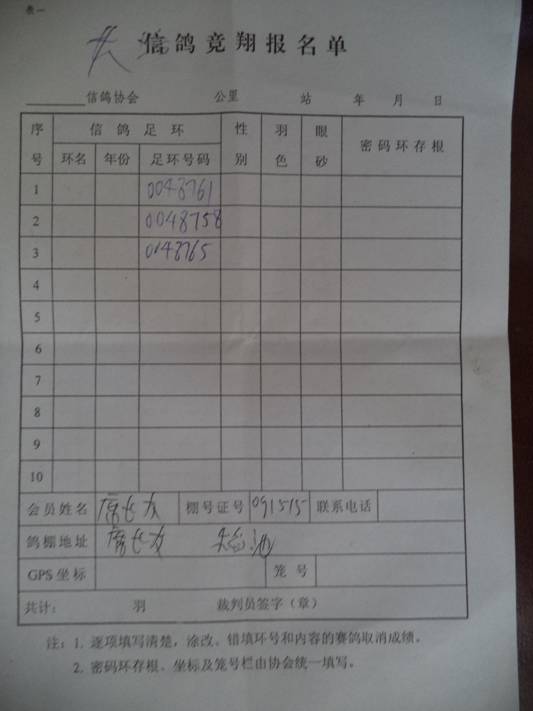 表一
信鸽竞翔报名单
信鸽协会 公里 站 年 月 日
序号 信鸽足环 性别 羽色 眼砂 密码环存根
环名 年份 足环号码
1 0048761
2 0048758
3 0048765
4
5
6
7
8
9
10
会员姓名 席长友 棚号证号 091515 联系电话
鸽棚地址 席长友
GPS坐标 笼号
共计: 羽 裁判员签字(章)
注:1. 逐项填写清楚,涂改、错填环号和内容的赛鸽取消成绩。
2. 密码环存根、坐标及笼号栏由协会统一填写。